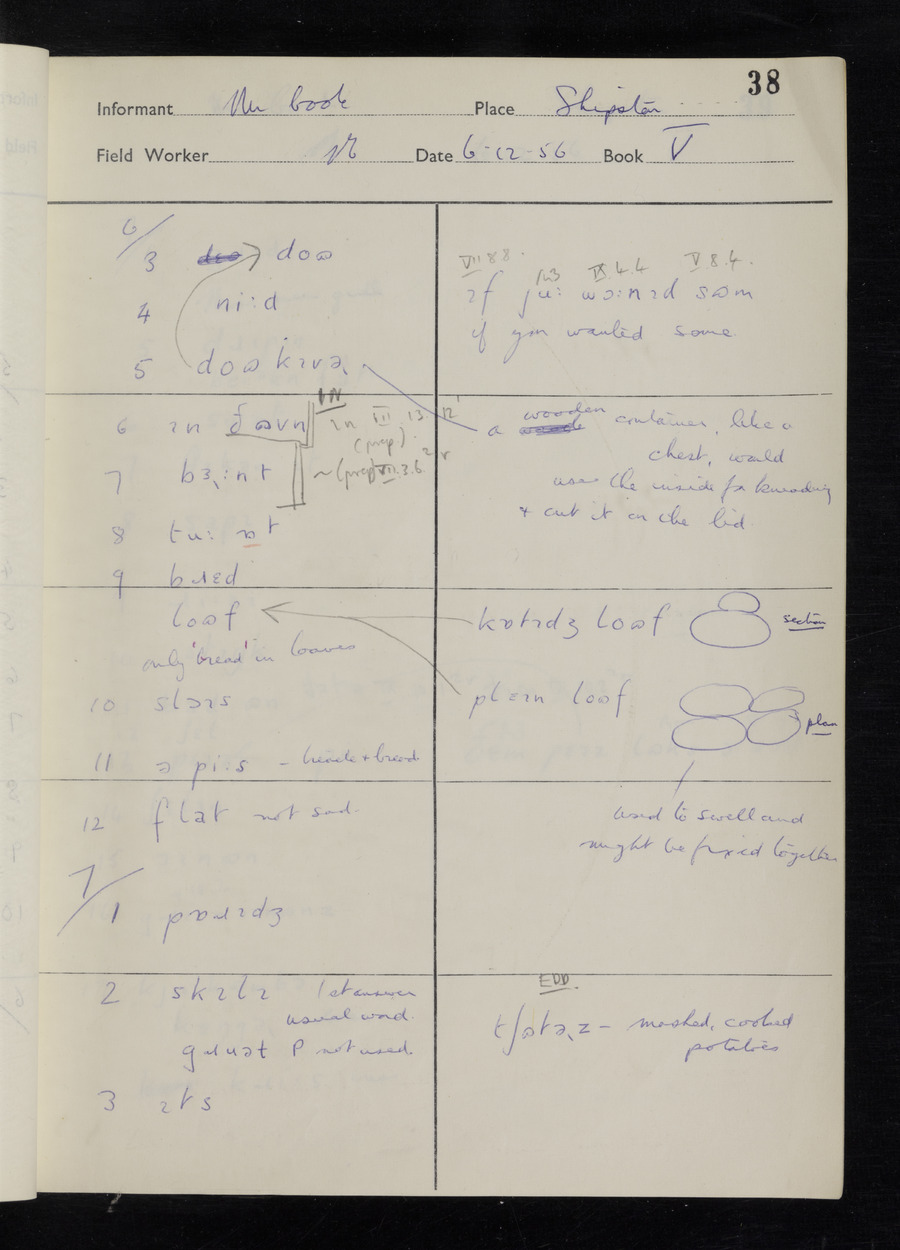 38
Informant Mr Cook Place Shipston
Field Worker Date 6-12-56 Book V
6/
3 doɷ
4 ni:d
5 doɷkɪvə
VII 8 8. IX.4.4 V 8.4.
ɪf ju: wɔ:nɪd sɷm
if you wanted some
IN
6 ɪn ɷvn ɪn VII 13 12
(prep).
7 bɜ:nt ~(prep) VII.3.6
8 tu: ɒt
9 bɹɛd
a wooden container, like a
chest, would
use the inside for kneading
+ cut it on the lid
loɷf
only 'bread' in loaves
kɒtɪdʒ loɷf section
10 slɔɪs
plɛɪn loɷf plan
11 ə pi:s - bread
12 flat not sad
used to swell and
might be fixed together
7/
1 pɒɹɪdʒ
2 skɪlɪ 1st answer
usual word.
gɹuət P not used.
EDD.
tʃɒtəz - mashed, cooked
potatoes
3 ɪts